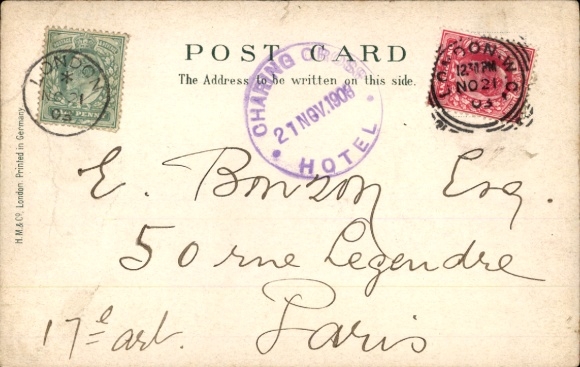 POST CARD
The Address to be written on this side.
LONDON
21
03
CHARING CROSS
21 NOV. 1903
HOTEL
LONDON. W.C.
12.30 PM
NO 21
03
H.M.& Co., London. Printed in Germany
E. Bonzon Esq.
50 rue Legendre
17e art. Paris